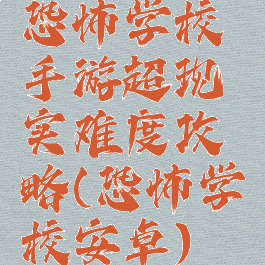 恐怖学校
手游超现
实难度攻
略(恐怖学
校安卓)